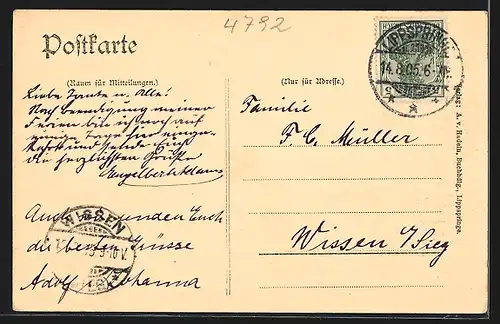 4792
Postkarte
(Raum für Mitteilungen.)
(Nur für Adresse.)
LIPPSPRINGE
14.8.05. 6-7N.
Verlag: A. v. Hadeln, Buchhdlg., Lippspringe.
Liebe Tante u. Alle!
Nach beendigung meiner
Ferien bin ich noch auf
einige Tage hier einge-
kehrt und sende Euch
die herzlichsten Grüße
Engelbert
Auch senden Euch
die besten Grüsse
Adolf u. Johanna
WISSEN
9-10 V.
Familie
F. C. Müller
Wissen a/Sieg